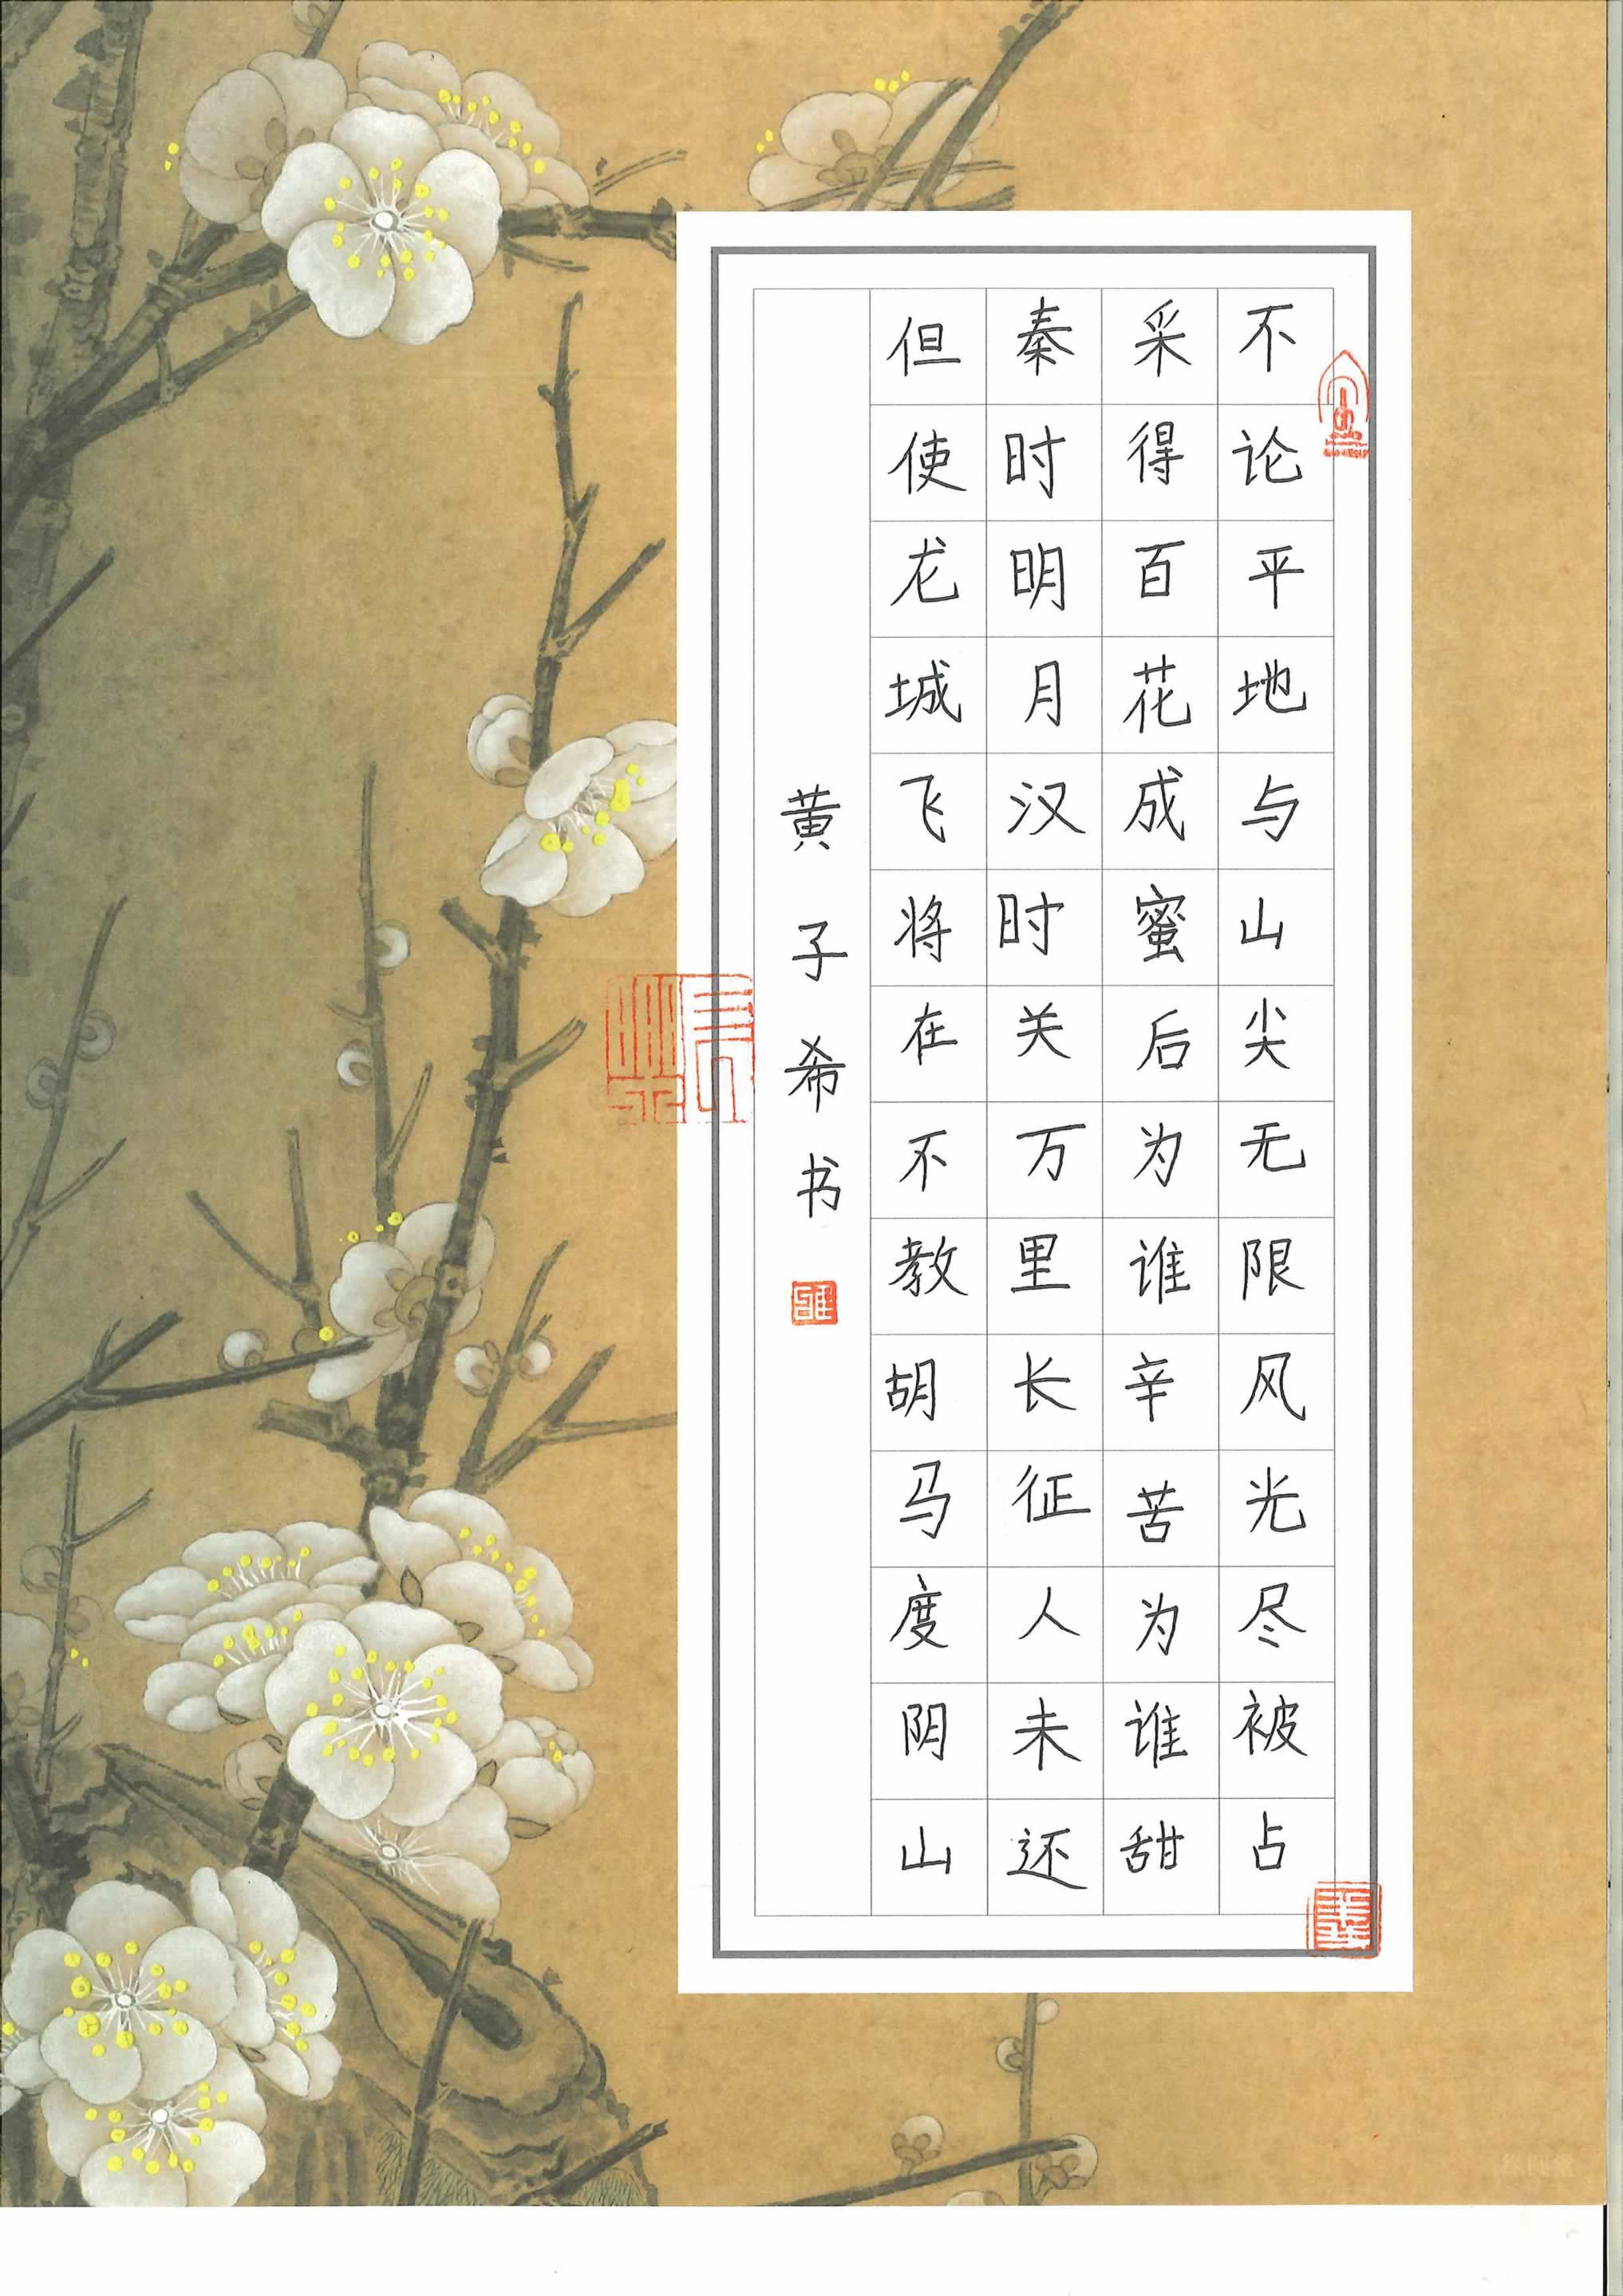 不论平地与山尖无限风光尽被占
采得百花成蜜后为谁辛苦为谁甜
秦时明月汉时关万里长征人未还
但使龙城飞将在不教胡马度阴山
黄子希书